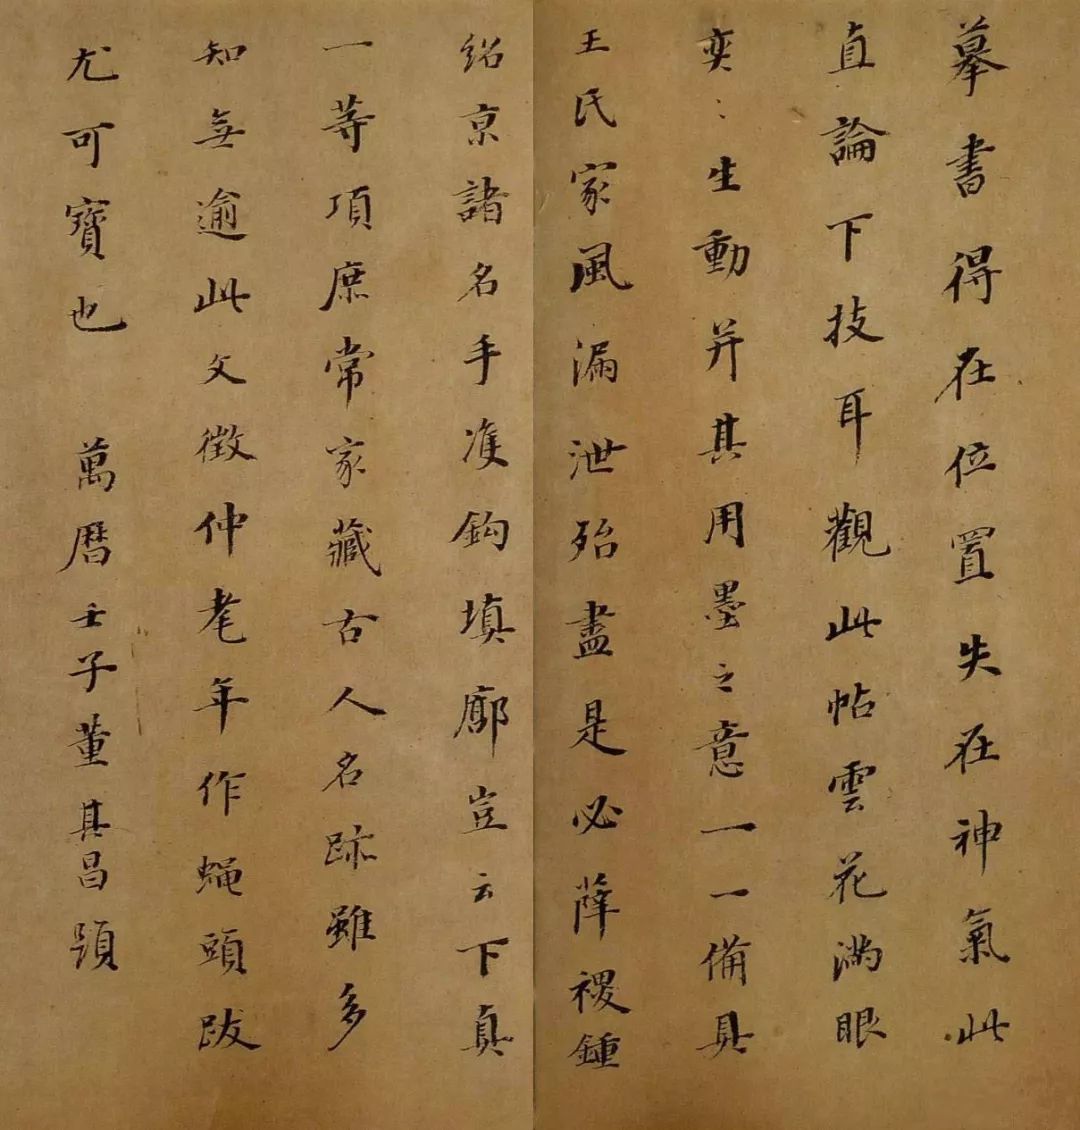 摹書得在位置失在神氣此
直論下技耳觀此帖雲花滿眼
奕〻生動并其用墨之意一一備具
王氏家風漏泄殆盡是必薛稷鍾
紹京諸名手准鈎填廓豈云下真
一等項庶常家藏古人名跡雖多
知無逾此文徵仲耄年作蝇頭跋
尤可寶也 萬曆壬子董其昌題